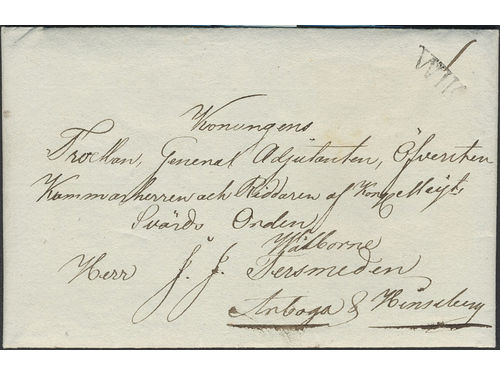 Konungens
Troman, General Adjutanten, Öfversten
Kammarherren och Riddaren af Kongl. Maij:ts
Svärds Orden
Wälborne
Herr J. J. Tersmeden
Arboga & Hinseberg